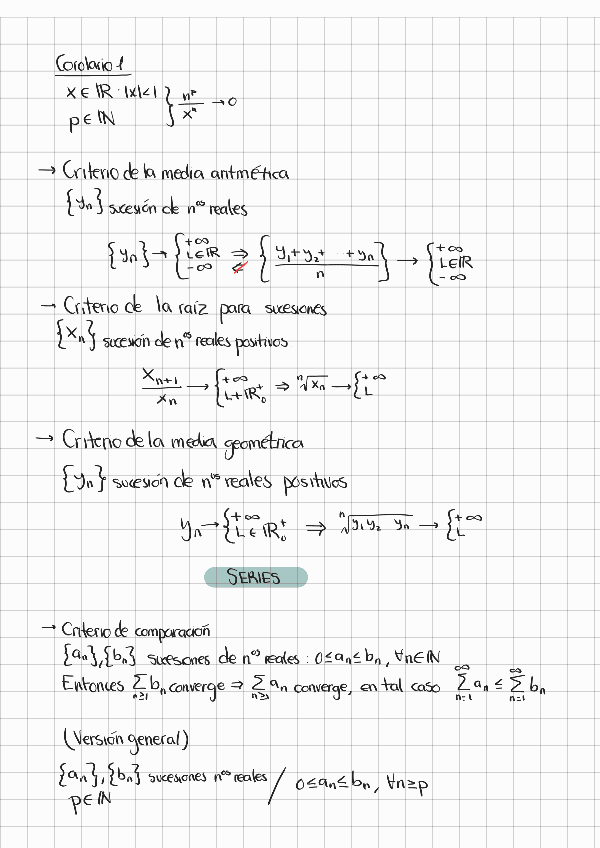 Corolario 1
x ∈ ℝ : |x|<1 } n^p / x^n → 0
p ∈ ℕ
→ Criterio de la media aritmética
{y_n} sucesión de n^os reales
{y_n} → { +∞ L∈ℝ -∞ ⇒ ⇍ { y_1+y_2+ +y_n / n } → { +∞ L∈ℝ -∞
→ Criterio de la raíz para sucesiones
{x_n} sucesión de n^os reales positivos
x_{n+1} / x_n → { +∞ L+ℝ_0^+ ⇒ ⁿ√x_n → { +∞ L
→ Criterio de la media geométrica
{y_n} sucesión de n^os reales positivos
y_n → { +∞ L ∈ ℝ_0^+ ⇒ ⁿ√y_1 y_2 y_n → { +∞ L
SERIES
→ Criterio de comparación
{a_n}, {b_n} sucesiones de n^os reales : 0≤a_n≤b_n, ∀n∈ℕ
Entonces Σ_{n≥1} b_n converge ⇒ Σ_{n≥1} a_n converge, en tal caso Σ_{n=1}^∞ a_n ≤ Σ_{n=1}^∞ b_n
(Versión general)
{a_n}, {b_n} sucesiones n^os reales / 0≤a_n≤b_n, ∀n≥p
p∈ℕ